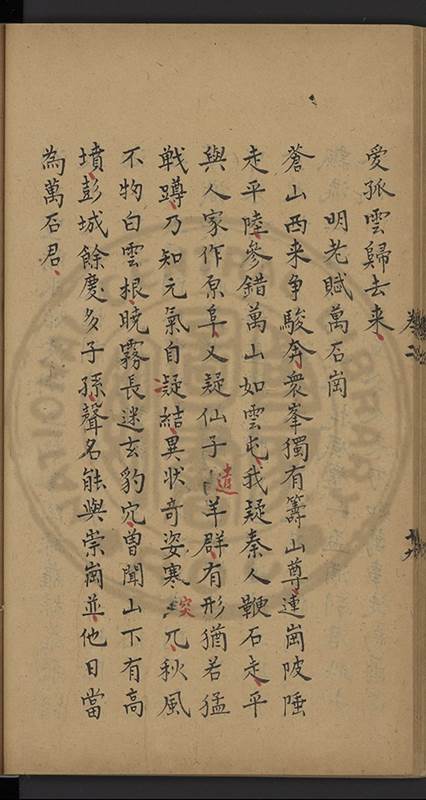 愛孤雲歸去来
明老賦萬石崗
蒼山西来争駿奔衆峯獨有籌山尊連崗陂陲
走平陸參錯萬山如雲屯我疑秦人鞭石走平
與人家作原阜又疑仙子遺羊群有形猶若猛
戦蹲乃知元氣自凝結異状奇姿寒突兀秋風
不物白雲根暁霧長迷玄豹穴曽聞山下有高
墳彭城餘慶多子孫聲名能與崇崗並他日當
為萬石君
卷二